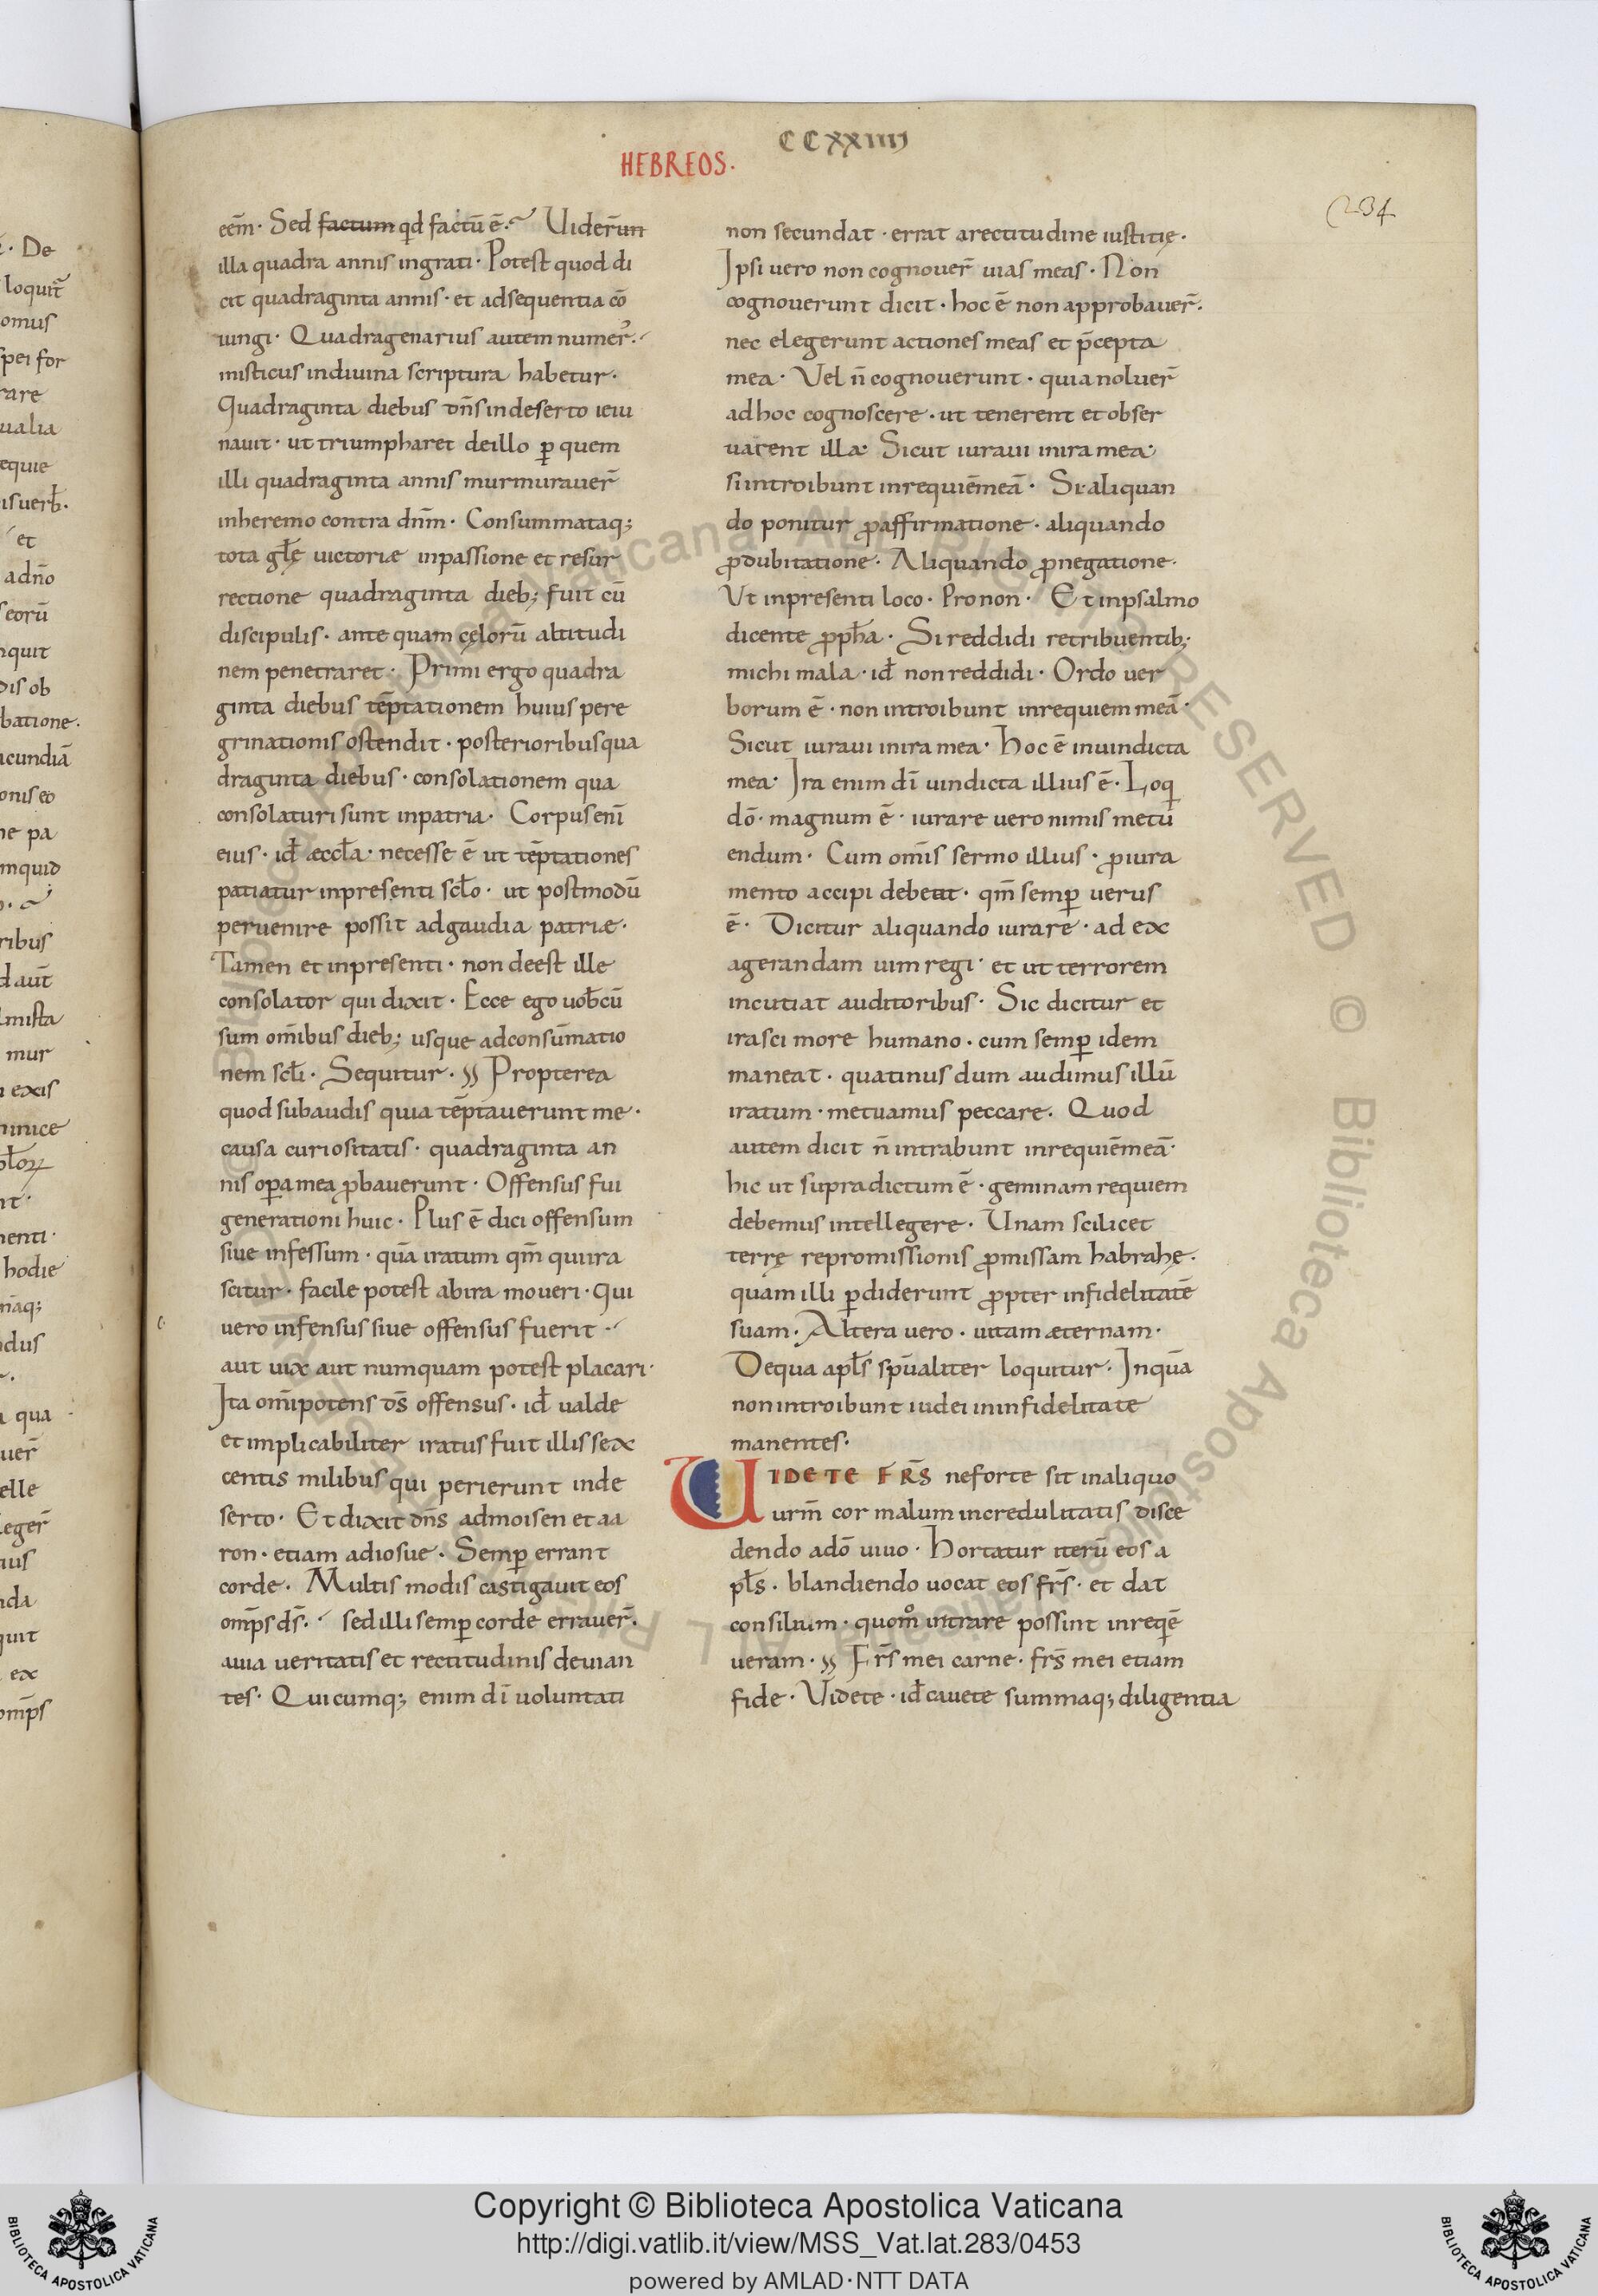 CCXXIIII
HEBREOS.
234
eēm· Sed factum qđ factū ē· Uiderun
illa quadra annis ingrati· Potest quod di
cit quadraginta annis· et adsequentia cō
iungi· Quadragenarius autem numer᾽·
misticus indiuina scriptura habetur·
Quadraginta diebus dn̄s indeserto ieiu
nauit· ut triumpharet deillo ꝑ quem
illi quadraginta annis murmurauer̄
inheremo contra dnm̄· Consummataq;
tota gl̄ę uictoriæ inpassione et resur
rectione quadraginta dieb; fuit cū
discipulis· ante quam cęlorū altitudi
nem penetraret· Primi ergo quadra
ginta diebus tēptationem huius pere
grinationis ostendit· posterioribus qua
draginta diebus· consolationem qua
consolaturi sunt inpatria· Corpus eni̅
eius· id̄ æccl̄a· necesse ē ut tēptationes
patiatur inpresenti scl̄o· ut postmodū
peruenire possit adgaudia patriæ·
Tamen et inpresenti· non deest ille
consolator qui dixit· Ecce ego uob̄cū
sum om̄ibus dieb; usque adconsūmatio
nem scl̄i· Sequitur· Propterea
quod subaudis quia tēptauerunt me·
causa curiositatis· quadraginta an
nis oꝑa mea ꝓbauerunt· Offensus fui
generationi huic· Plus ē dici offensum
siue infessum· quā iratum qm̄ qui ira
scitur· facile potest abira moueri· Qui
uero infensus siue offensus fuerit·
aut uix aut numquam potest placari·
Ita om̄ipotens ds̄ offensus· id̄ ualde
et implicabiliter iratus fuit illis sex
centis milibus qui perierunt inde
serto· Et dixit dn̄s admoisen et aa
ron· etiam adiosue· Semꝑ errant
corde· Multis modis castigauit eos
omp̄s ds̄· sed illi semꝑ corde errauer̄·
auia ueritatis et rectitudinis deuian
tes· Quicumq; enim di̅ uoluntati
non secundat· errat arectitudine iustitię·
Ipsi uero non cognouer̄ uias meas· Non
cognouerunt dicit· hoc ē non approbauer̄·
nec elegerunt actiones meas et p̄cepta
mea· Vel n̄ cognouerunt· quia noluer̄
adhoc cognoscere· ut tenerent et obser
uarent illa· Sicut iuraui inira mea·
si introibunt inrequiēmeā· Si aliquan
do ponitur ꝓaffirmatione· aliquando
ꝓdubitatione· Aliquando ꝓnegatione·
Ut inpresenti loco· Pro non· Et inpsalmo
dicente ꝓph̄a· Si reddidi retribuentib;
michi mala· id̄ non reddidi· Ordo uer
borum ē· non introibunt inrequiem meā·
Sicut iuraui inira mea· Hoc ē inuindicta
mea· Ira enim di̅ uindicta illius ē· Loqi
dō· magnum ē· iurare uero nimis metu
endum· Cum om̄is sermo illius· ꝓiura
mento accipi debeat· qm̄ semꝑ uerus
ē· Dicitur aliquando iurare· ad ex
agerandam uim regi· et ut terrorem
incutiat auditoribus· Sic dicitur et
irasci more humano· cum semꝑ idem
maneat· quatinus dum audimus illū
iratum· metuamus peccare· Quod
autem dicit n̄ intrabunt inrequiēmeā·
hic ut supradictum ē· geminam requiem
debemus intellegere· Unam scilicet
terrę repromissionis ꝓmissam habrahę·
quam illi ꝑdiderunt ꝓpter infidelitatē
suam· Altera uero· uitam æternam·
Dequa apl̄s spūaliter loquitur· Inquā
non introibunt iudei ininfidelitate
manentes·
UIDETE FRS̄ neforte sit inaliquo
urm̄ cor malum incredulitatis disce
dendo adō uiuo· Hortatur iterū eos a
pl̄s· blandiendo uocat eos frs̄· et dat
consilium· quom̊ intrare possint inreqiē
ueram· Frs̄ mei carne· frs̄ mei etiam
fide· Videte· id̄ cauete summaq; diligentia
Copyright © Biblioteca Apostolica Vaticana
http://digi.vatlib.it/view/MSS_Vat.lat.283/0453
powered by AMLAD·NTT DATA
BIBLIOTECA APOSTOLICA VATICANA
BIBLIOTECA APOSTOLICA VATICANA